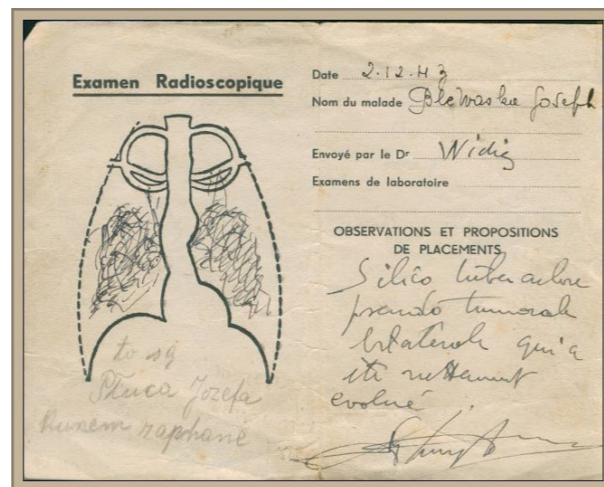 Examen Radioscopique
Date 2.12.43
Nom du malade Joseph
Envoyé par le Dr Widig
Examens de laboratoire
OBSERVATIONS ET PROPOSITIONS
DE PLACEMENTS
Silico tuberculose
pseudo tumorale
bilatérale qui a
été nettement
evolué
to są
Płuca Jozefa
zaphane